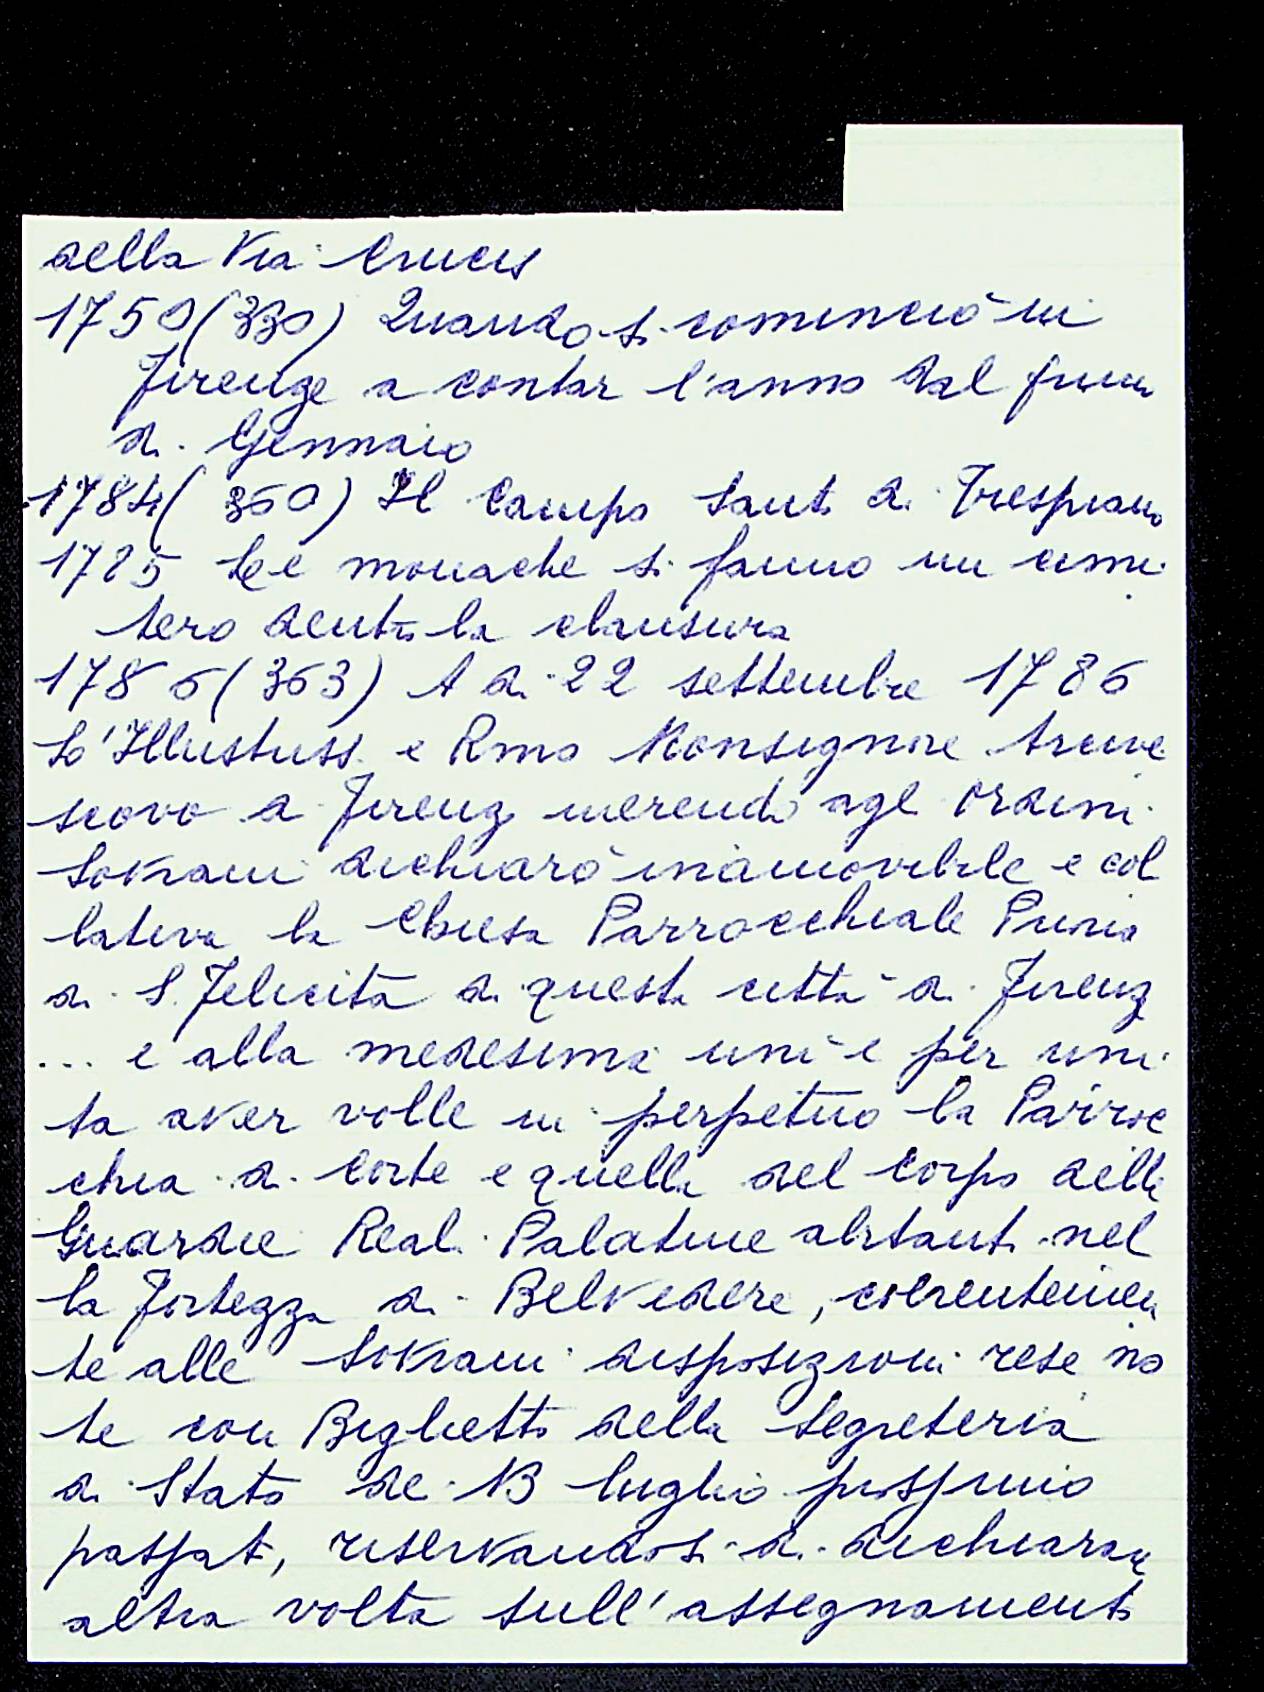 della Via Crucis
1750 (330) Quando si cominciò in
Firenze a contar l'anno dal primo
di Gennaio
1784 (360) Il Campo Santo di Trespiano
1785 Le monache si fanno un cimi
tero dentro la clausura
1786 (363) A dì 22 settembre 1786
L'Illustriss. e Rmo Monsignore Arcive
scovo di Firenze inerendo agl'ordini
Sovrani dichiarò inamovibile e col
lativa la Chiesa Parrocchiale Prioria
di S. Felicita di questa città di Firenze
... e alla medesima unì e per uni
ta aver volle in perpetuo la Parroc
chia di Corte e quella del Corpo delle
Guardie Reali Palatine abitanti nel
la Fortezza di Belvedere, coerentemen
te alle Sovrani disposizioni rese no
te con Biglietto della Segreteria
di Stato de 13 luglio prossimo
passato, riservandosi di dichiarare
altra volta sull'assegnamento